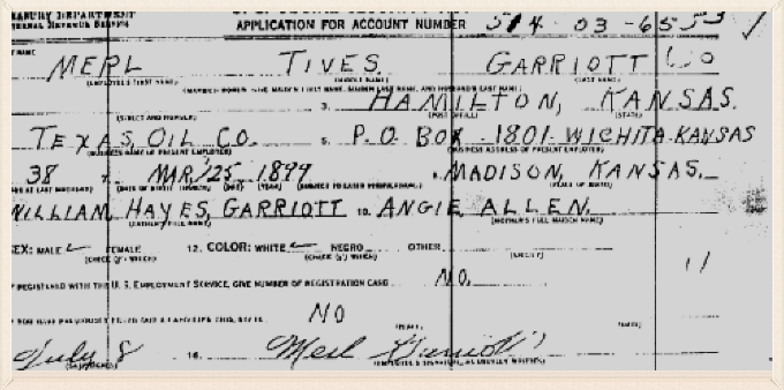 TREASURY DEPARTMENT
INTERNAL REVENUE SERVICE
APPLICATION FOR ACCOUNT NUMBER
MERL TIVES. GARRIOTT
(EMPLOYEE'S FIRST NAME) (MIDDLE NAME) (LAST NAME)
3. HAMILTON, KANSAS.
(STREET AND NUMBER) (POST OFFICE) (STATE)
TEXAS OIL CO. 5. P.O. BOX - 1801 - WICHITA - KANSAS
(BUSINESS NAME OF PRESENT EMPLOYER) (BUSINESS ADDRESS OF PRESENT EMPLOYER)
38 MAR. 25 1899 MADISON, KANSAS.
(PLACE OF BIRTH)
WILLIAM HAYES GARRIOTT 10. ANGIE ALLEN.
(FATHER'S FULL NAME) (MOTHER'S FULL MAIDEN NAME)
SEX: MALE ✓ FEMALE 12. COLOR: WHITE ✓ NEGRO OTHER
(CHECK (✓) WHICH) (CHECK (✓) WHICH) (SPECIFY)
REGISTERED WITH THE U. S. EMPLOYMENT SERVICE, GIVE NUMBER OF REGISTRATION CARD NO.
NO
(PLACE) (DATE)
July 8 16. Merl Garriott
(EMPLOYEE'S SIGNATURE, AS USUALLY WRITTEN)